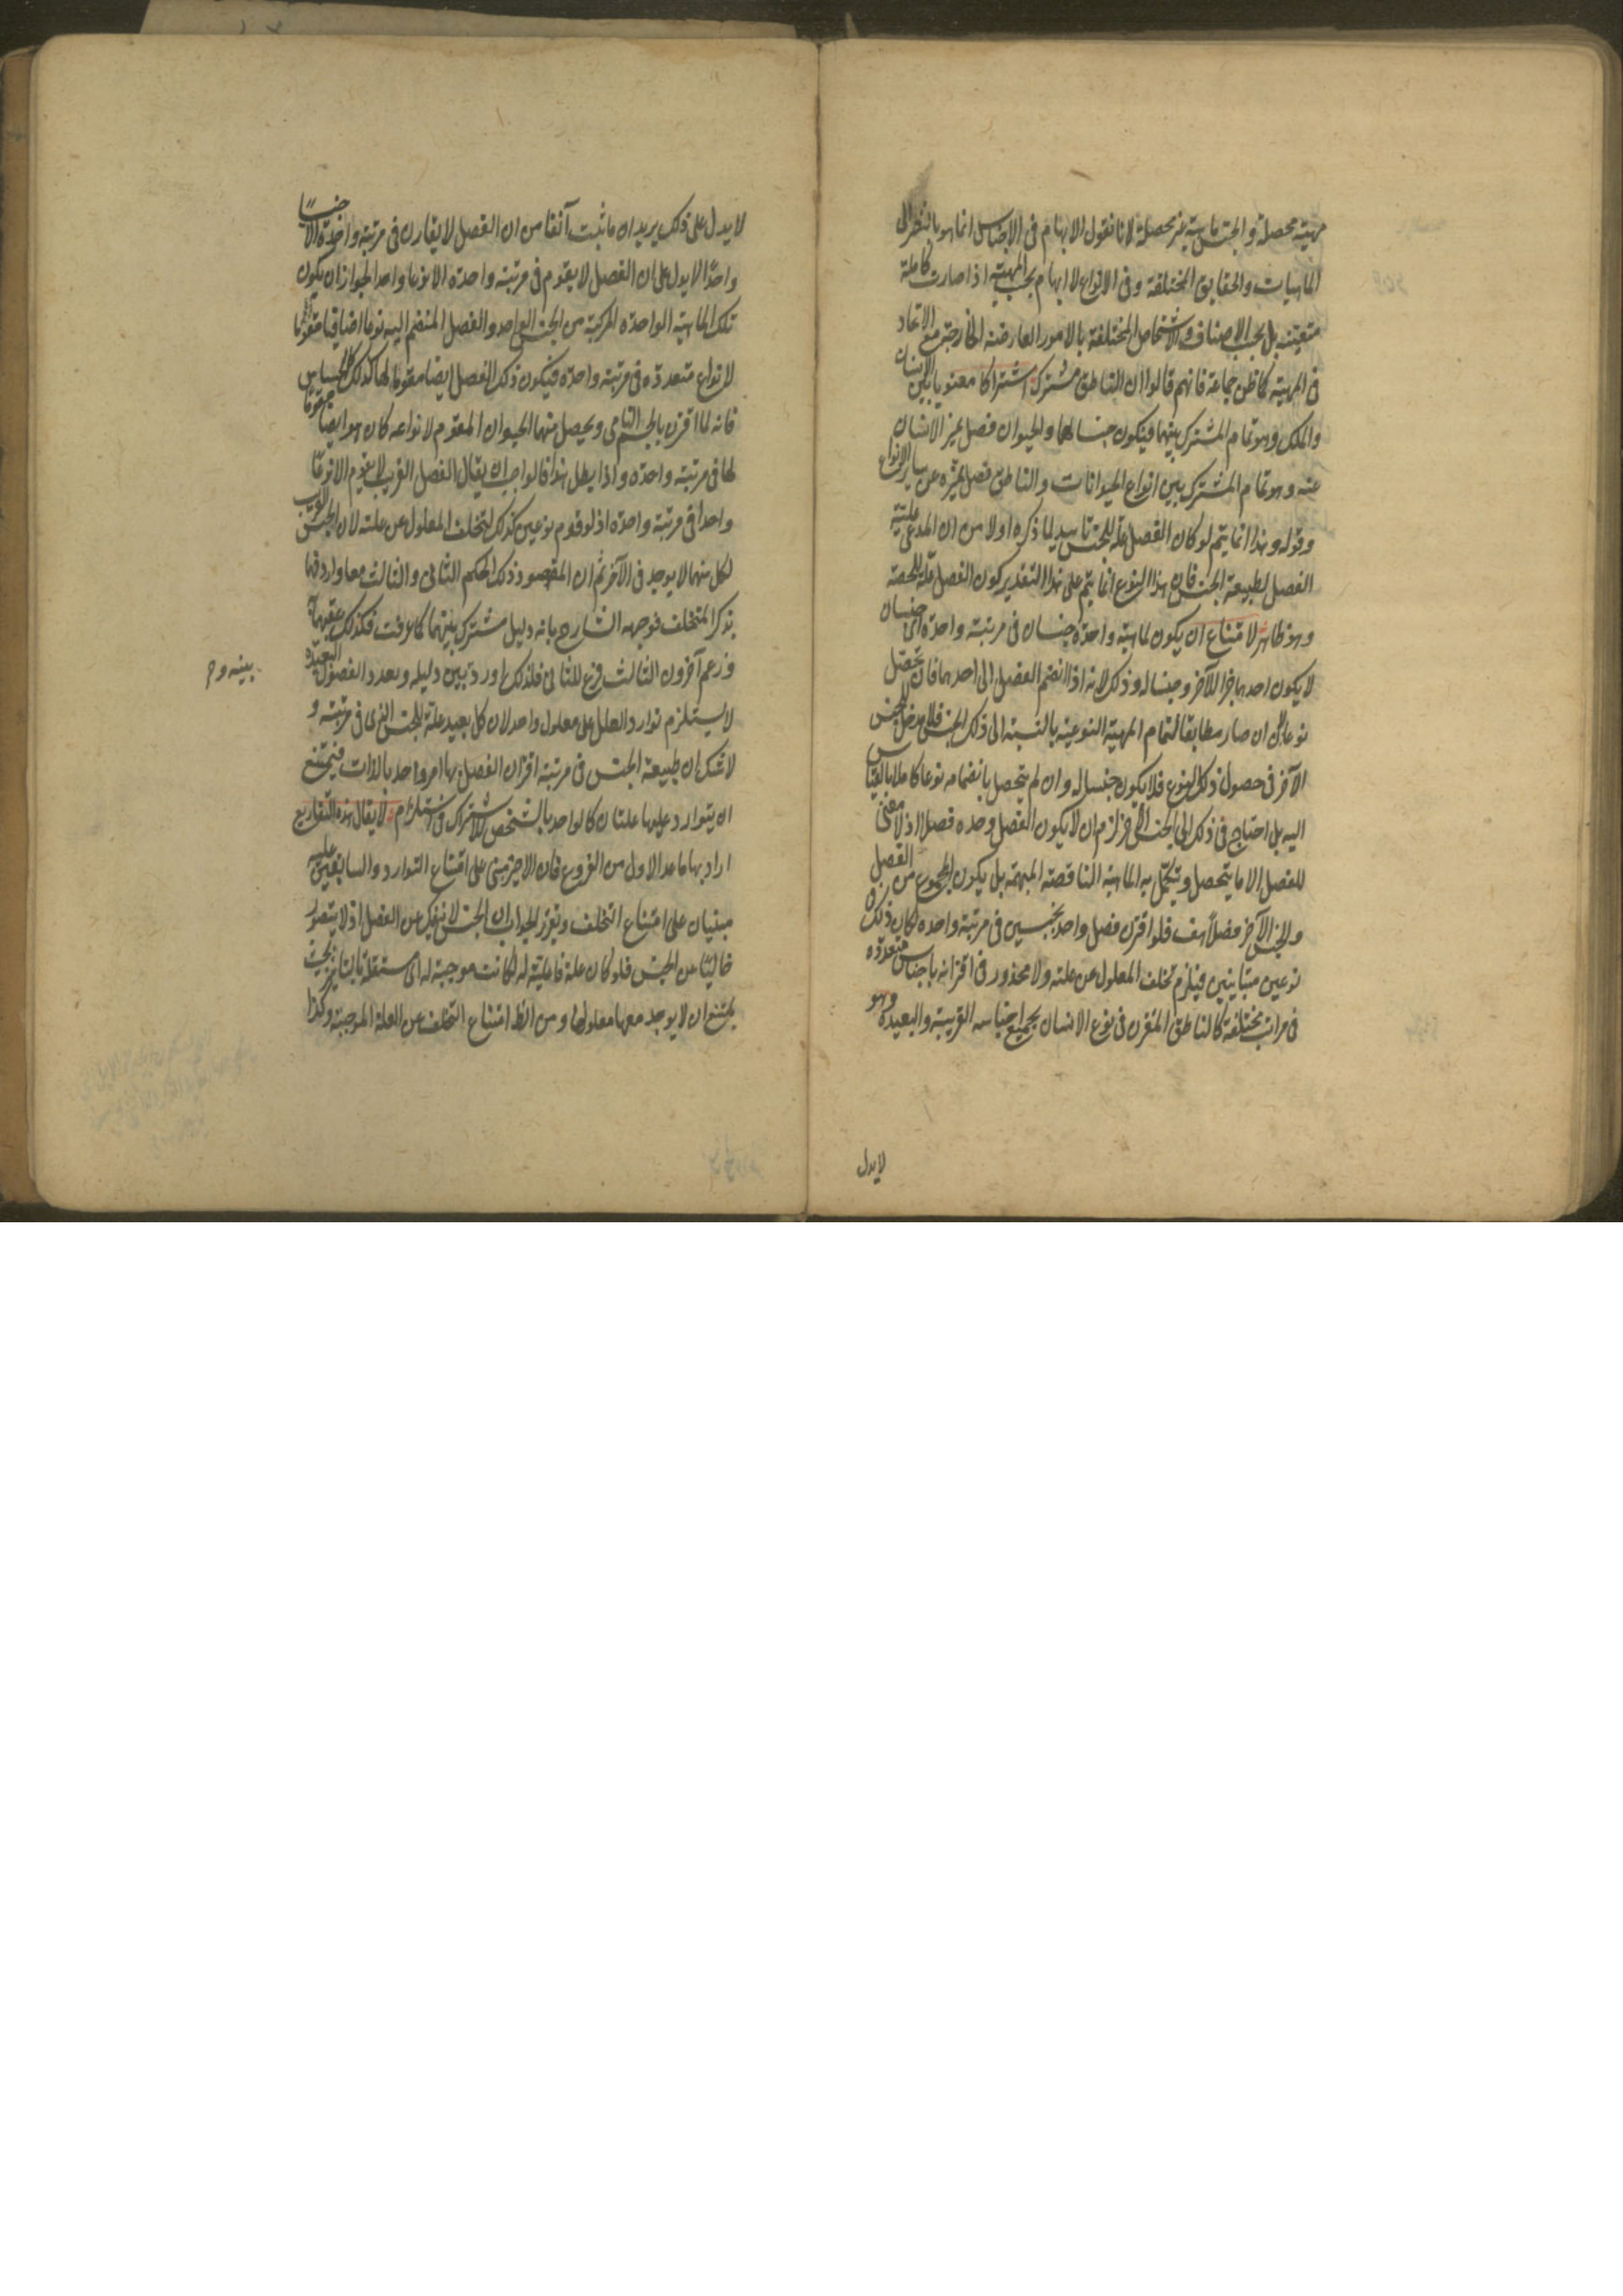 مهية محصلة والجنس ماهية غير محصلة لانا نقول الابهام فى الاجناس انما هو بالنظر الى
الماهيات والحقايق المختلفة وفى الانواع لا ابهام بحسب المهية اذا صارت كاملة
متعينة بل بحسب الاصناف والاشخاص المختلفة بالامور العارضة الخارجة مع الاتحاد
فى المهية كما ظن جماعة فانهم قالوا ان الناطق مشترك اشتراكا معنويا بين الانسان
والملك وهو تمام المشترك بينهما فيكون جنسا لهما والحيوان فصل يميز الانسان
عنه وهو تمام المشترك بين انواع الحيوانات والناطق فصل يميزه عن ساير الانواع
وقوله وهذا انما يتم لو كان الفصل علة للجنس تاييد لما ذكره اولا من ان المدعى علية
الفصل لطبيعة الجنس فان هذا الفرع انما يتم على هذا التقدير كون الفصل علة للحصة
وهو ظاهر لامتناع ان يكون لماهية واحدة جنسان فى مرتبة واحدة اى جنسان
لا يكون احدهما جزا للآخر وجنسا له وذلك لانه اذا انضم الفصل الى احدهما فان تحصل
نوعا اى ان صار مطابقا لتمام المهية النوعية بالنسبة الى ذلك الجنس فلا مدخل للجنس
الآخر فى حصول ذلك النوع فلا يكون جنسا له وان لم يتحصل بانضمامه نوعا كاملا بالقياس
اليه بل احتاج فى ذلك الى الجنس الآخر لزم ان لا يكون الفصل وحده فصلا اذ لا معنى
للفصل الا ما يتحصل وتكمل به الماهية الناقصة المبهمة بل يكون المجموع من الفصل
والجنس الآخر فصلا هف فلو اقترن فصل واحد بجنسين فى مرتبة واحده لكان ذلك
نوعين متباينين فيلزم تخلف المعلول عن علته ولا محذور فى اقترانه باجناس متعدده
فى مراتب مختلفة كالناطق المقترن فى نوع الانسان بجميع اجناسه القريبة والبعيدة وهو
لايدل
لا يدل على ذلك يريد ان ما ثبت آنفا من ان الفصل لا يقارن فى مرتبة واحدة الا جنسا
واحدا لا يدل على ان الفصل لا يقوم فى مرتبة واحدة الا نوعا واحدا لجواز ان يكون
تلك الماهية الواحده المركبة من الجنس الواحد والفصل المنضم اليه نوعا اضافيا مقوما
لانواع متعدده فى مرتبة واحدة فيكون ذلك الفصل ايضا مقوما لها كذلك كالحساس
فانه لما اقترن بالجسم النامى ويحصل منهما الحيوان المقوم لانواعه كان هو ايضا مقوما
لها فى مرتبة واحده واذا بطل هذا فالواجب ان يقال الفصل القريب لا يقوم الا نوعا
واحدا فى مرتبة واحدة اذ لو قوم نوعين كذلك لتخلف المعلول عن علته لان الجنس القريب
لكل منهما لا يوجد فى الآخر ثم ان المقصود ذلك الحكم الثانى والثالث معا واردفهما
بذكر التخلف فوجهه الشارح بانه دليل مشترك بينهما كما عرفت فكذلك عقبهما به
وزعم آخرون الثالث فرع للثانى فلذلك اورد بين دليله وتعدد الفصول البعيدة
بينه وم
لا يستلزم توارد العلل على معلول واحد لان كل بعيد علة للجنس الذى فى مرتبته و
لا شك ان طبيعة الجنس فى مرتبة اقتران الفصل بها امر واحد بالذات فيمتنع
ان يتوارد عليها علتان كالواحد بالشخص لاشتراكه فى استلزام لا يقال هذه التفاريع
اراد بها ما عدا الاول من الفروع فان الاخير مبنى على امتناع التوارد والسابقين عليه
مبنيان على امتناع التخلف وتقرير الجواب ان الجنس لا ينفك عن الفصل اذ لا يتصور
خاليا عن الجنس فلو كان علة فاعلية له لكانت موجبة له اى مستقلة بالتاثير بحيث
يمتنع ان لا يوجد معها معلولها ومن الظ امتناع التخلف عن العلة الموجبة وكذا